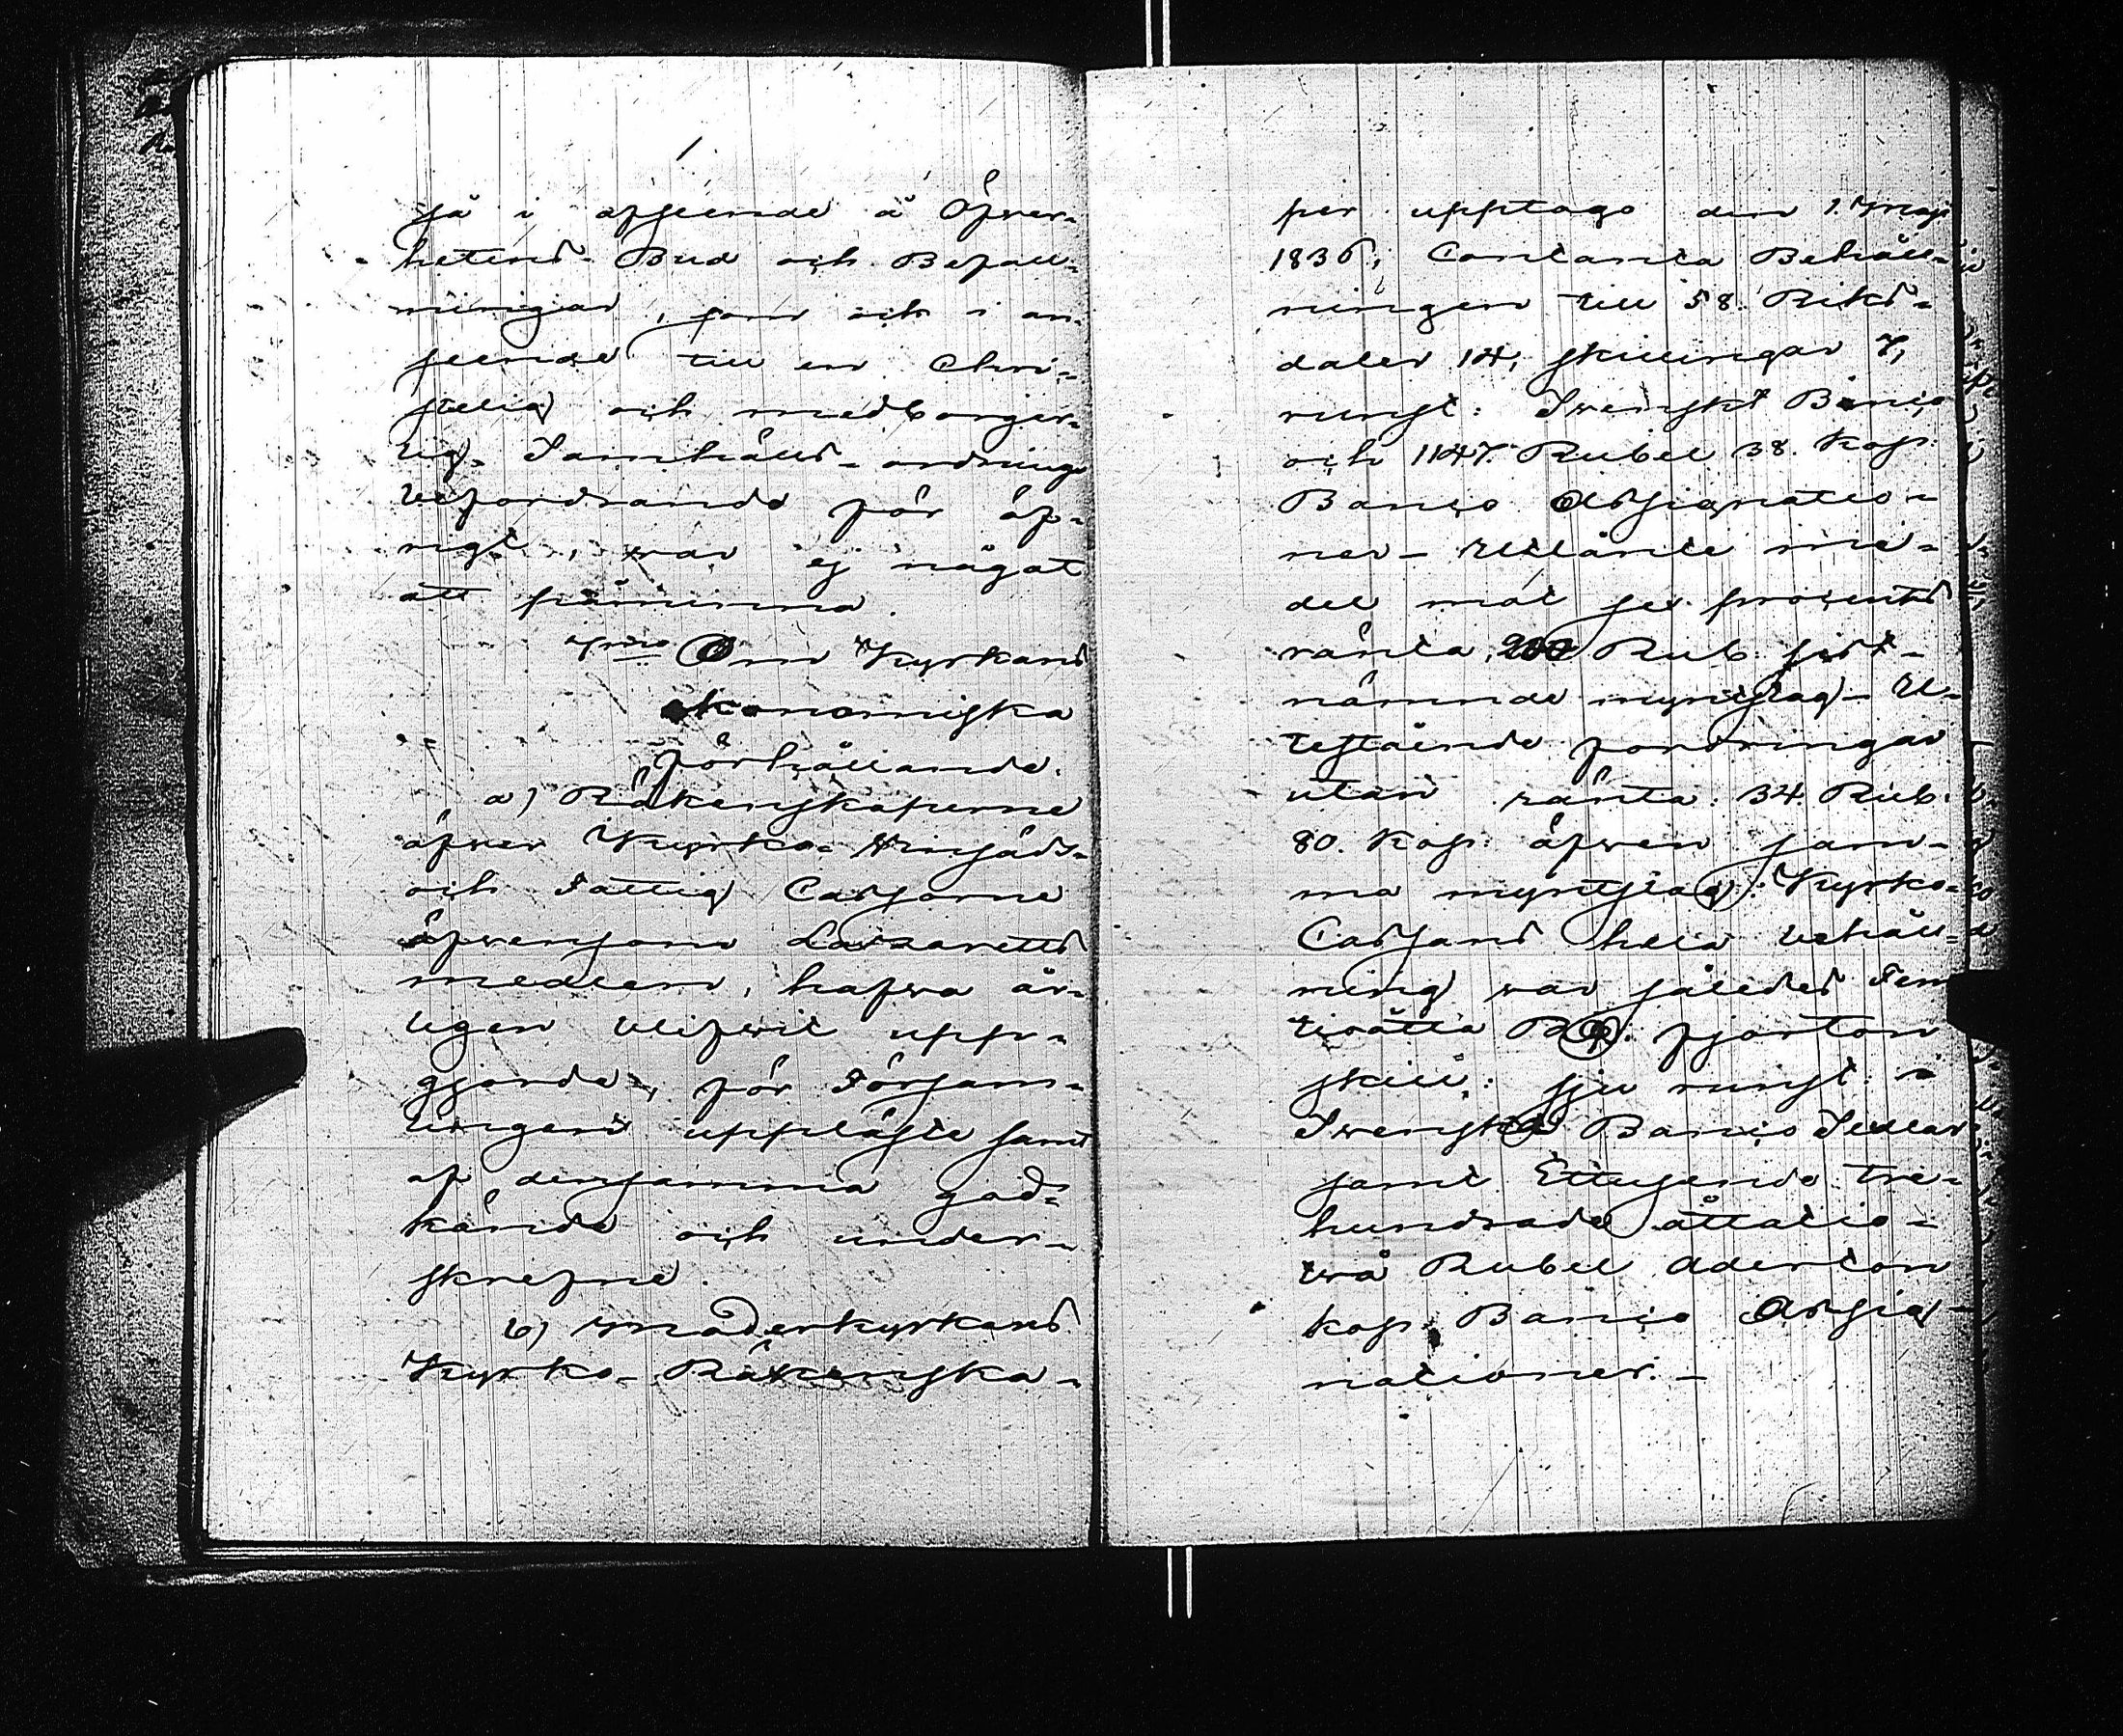 så i afseende å Öfwer-
hetens Bud och Befall-
ningar, som och i an-
seende till en Chri-
stelig och medborger-
lig Samhälls-ordnings
befordrande för öf-
rigt, war ej något
att påminna.
Om Kyrkans
ekonomiska
förhållande.
a) Räkenskaperne
öfwer Kyrko- Winsäds-
och Fattig Cassorne
äfwensom Lazaretts
medlen, hafwa år-
ligen blifwit upp-
gjorde, för Försam-
lingen uppläste samt
af densamma god-
kände och under-
skrefne.
b) Moderkyrkans
Kyrko-Räkenska-
per upptogo den 1. Maji
1836, Contanta Behåll-
ningen till 58. Riks-
daler 14, skillingar 7,
runst: Swenskt Banco
och 1147. Rubel 38. Kop:
Banco Assignatio-
ner - Utlånte me-
del mot sex procents
ränta, 200 Rub. sist-
nämnde myntslag - U-
testående fordringar
utan ränta: 34. Rub.
80. Kop: äfwen sam-
ma myntslag: Kyrko-
Cassans hela behåll-
ning war således Fem
tioåtta R: fjorton
skill: sju runst: i
Swenska Banco Sedlar
samt Ettusende tre-
hundrade åttatio-
twå Rubel aderton
kop. Banco Assig-
nationer. -